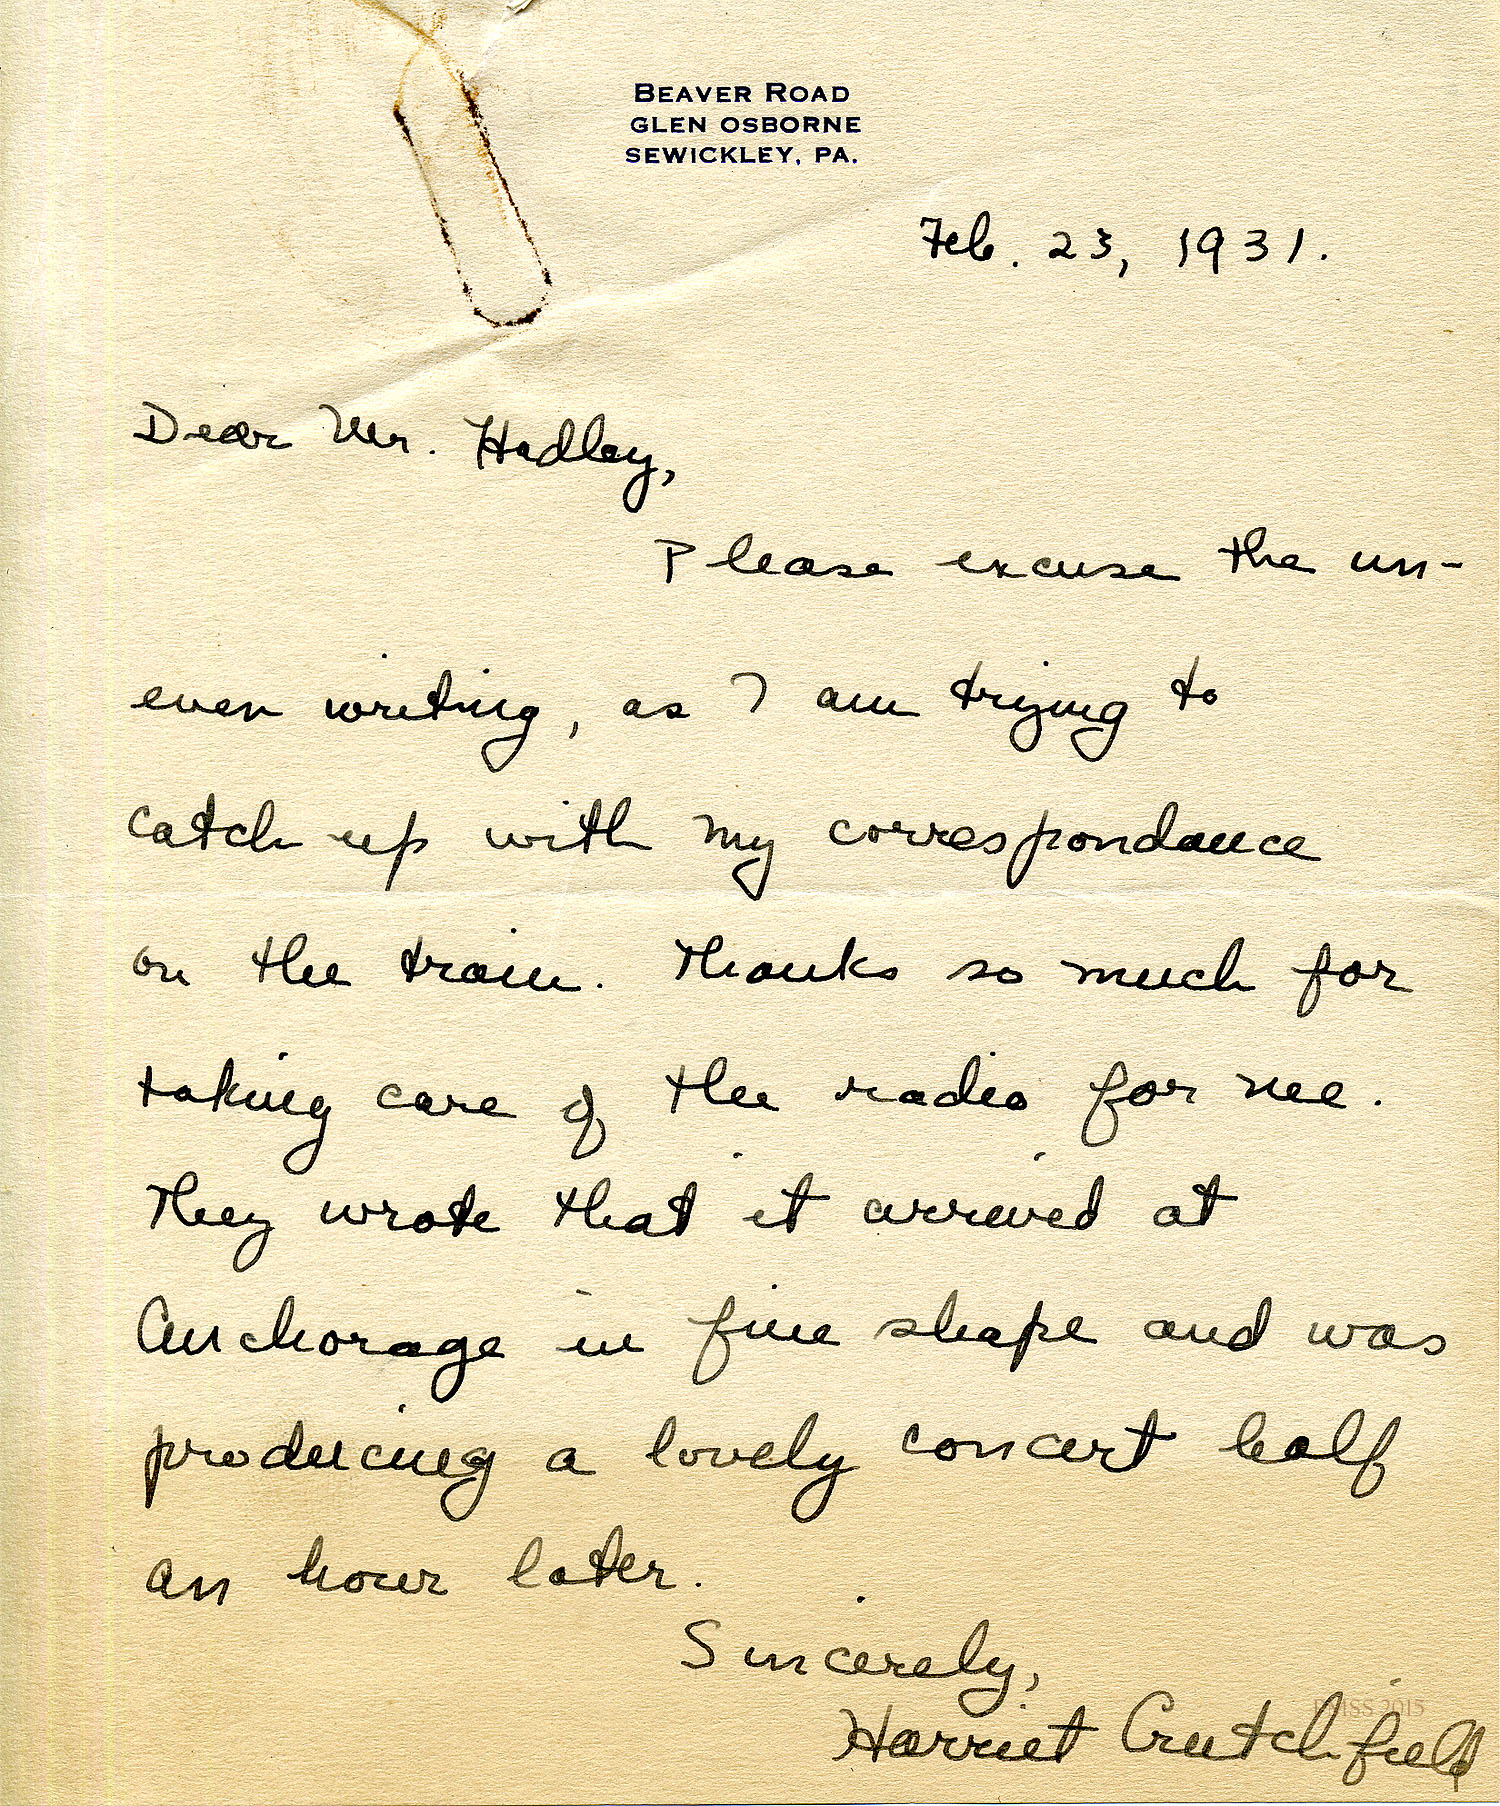 BEAVER ROAD
GLEN OSBORNE
SEWICKLEY, PA.
Feb. 23, 1931.
Dear Mr. Hadley,
Please excuse the un-
even writing, as I am trying to
catch up with my correspondance
on the train. Thanks so much for
taking care of the radio for me.
They wrote that it arrived at
Anchorage in fine shape and was
producing a lovely concert half
an hour later.
Sincerely,
Harriet Crutchfield
2015